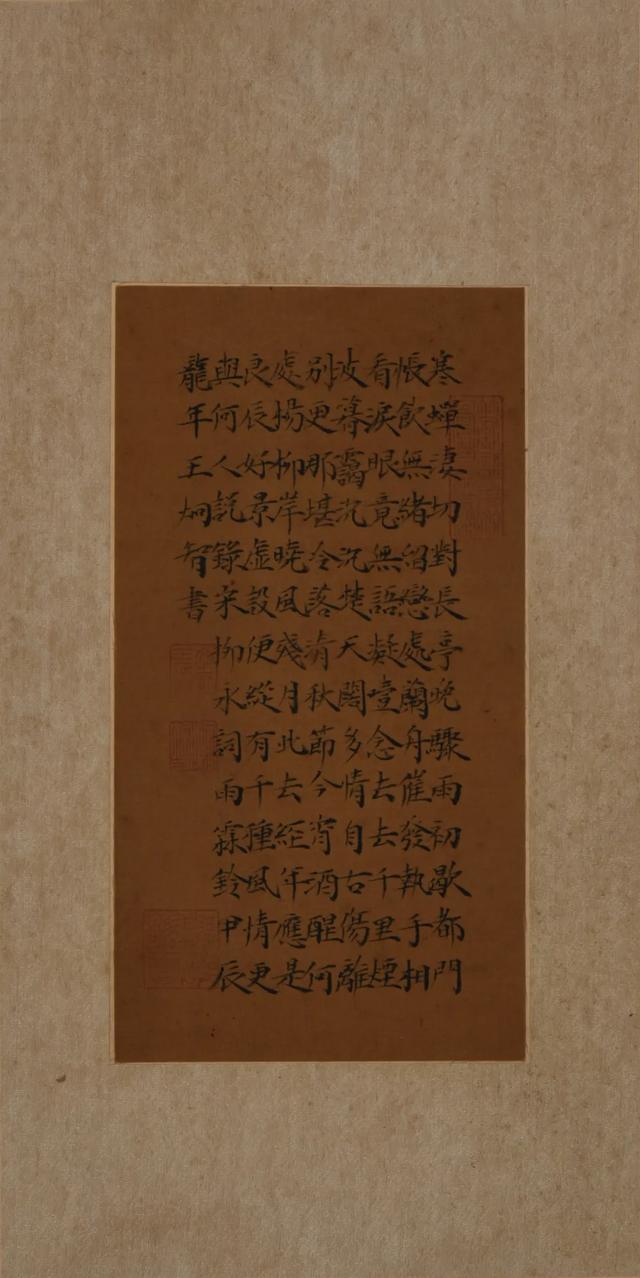 寒蟬淒切對長亭晚驟雨初歇都門
帳飲無緒留戀處蘭舟催發執手相
看淚眼竟無語凝壹念去去千里煙
波暮靄沉沉楚天闊多情自古傷離
別更那堪冷落清秋節今宵酒醒何
處楊柳岸曉風殘月此去經年應是
良辰好景虛設便縱有千種風情更
與何人說錄宋柳永詞雨霖鈴甲辰
龍年王炯智書